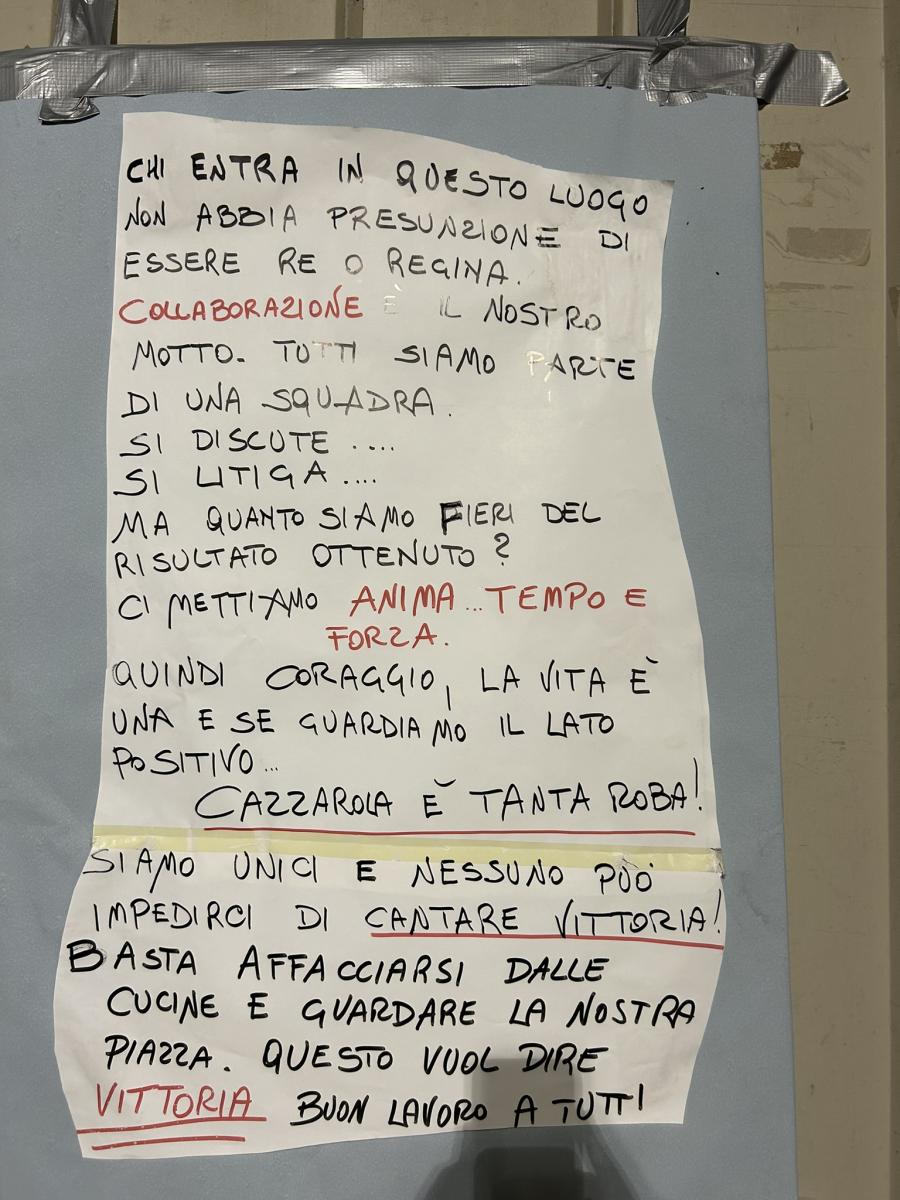 CHI ENTRA IN QUESTO LUOGO
NON ABBIA PRESUNZIONE DI
ESSERE RE O REGINA.
COLLABORAZIONE È IL NOSTRO
MOTTO. TUTTI SIAMO PARTE
DI UNA SQUADRA.
SI DISCUTE ....
SI LITIGA ....
MA QUANTO SIAMO FIERI DEL
RISULTATO OTTENUTO?
CI METTIAMO ANIMA...TEMPO E
FORZA.
QUINDI CORAGGIO, LA VITA È
UNA E SE GUARDIAMO IL LATO
POSITIVO...
CAZZAROLA È TANTA ROBA!
SIAMO UNICI E NESSUNO PUÒ
IMPEDIRCI DI CANTARE VITTORIA!
BASTA AFFACCIARSI DALLE
CUCINE E GUARDARE LA NOSTRA
PIAZZA. QUESTO VUOL DIRE
VITTORIA BUON LAVORO A TUTTI